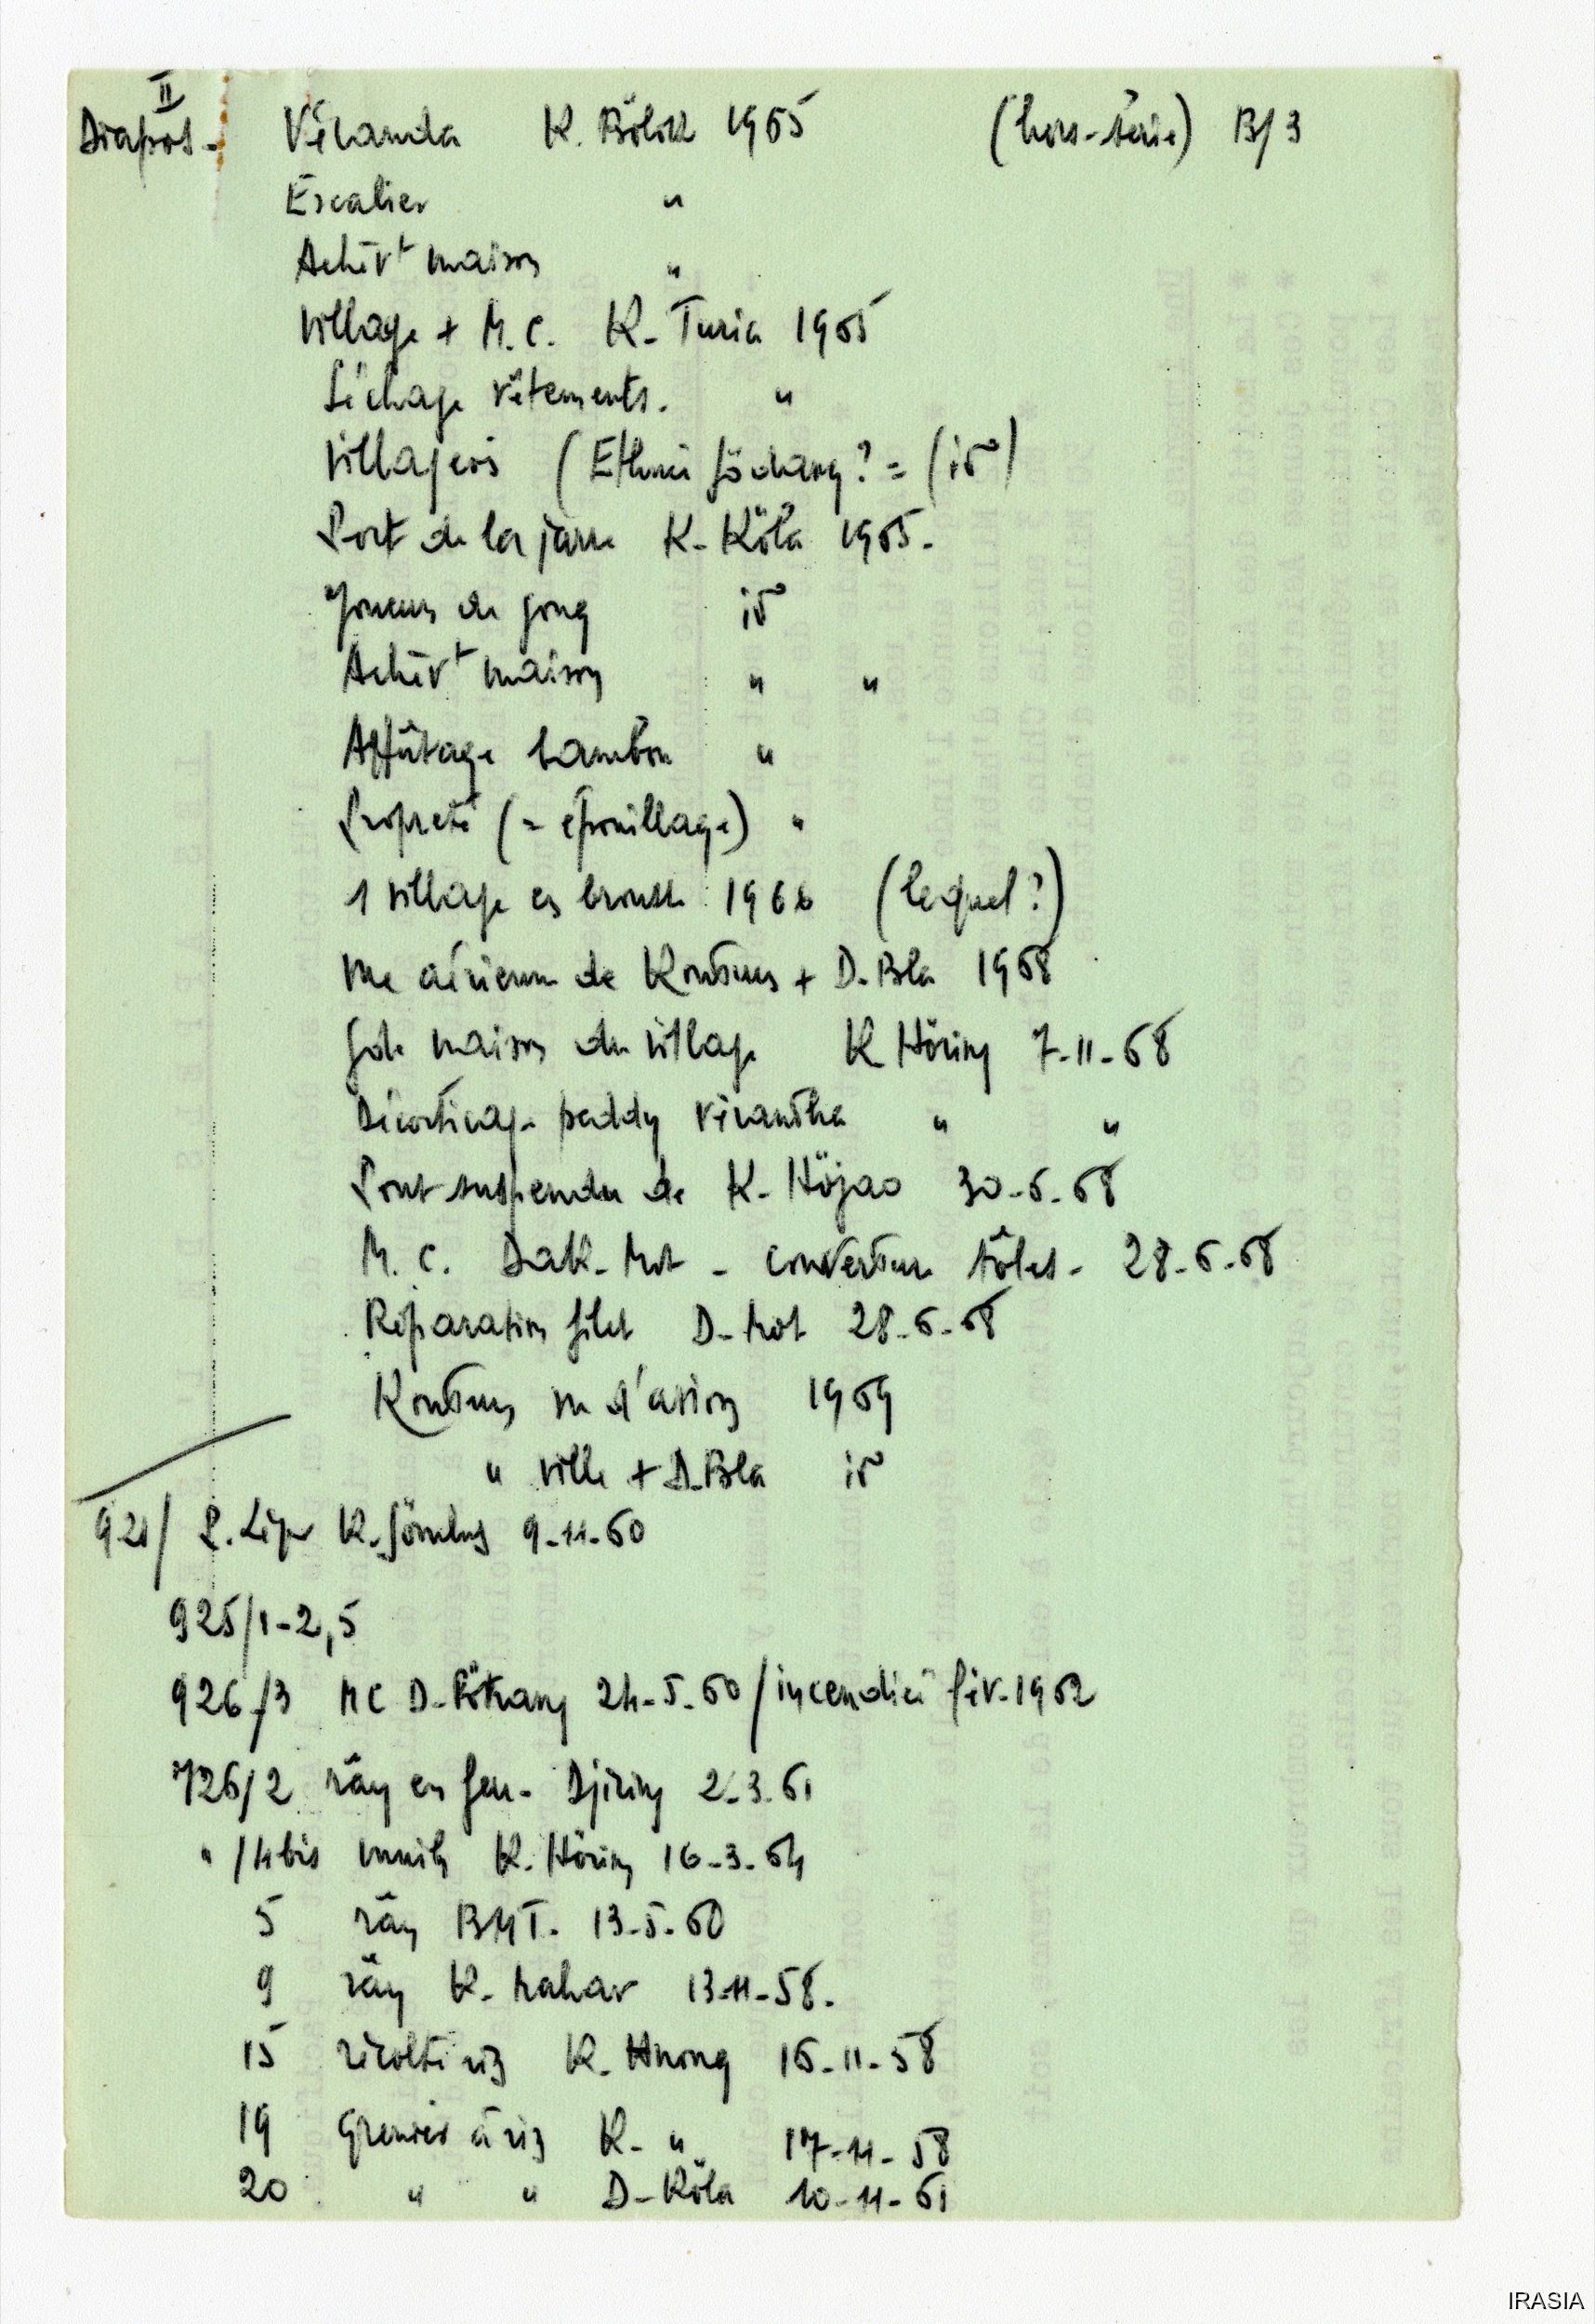 II
Diapos - Véranda K. Bölok 1965 (hors-série) B/3
Escalier "
Achèvt maison "
Village + M.C. K. Turia 1965
Séchage vêtements. "
Villageois (Ethnie Södang ? = (id°)
Port de la jarre K. Köla 1965.
Joueurs de gong id°
Achèvt maison " "
Affûtage bambou "
Propreté (= épouillage) "
1 village en brousse 1966 (lequel ?)
Vue aérienne de Kontum + D. Bla 1968
Gde maison du village K Höring 7-11-68
Décorticage paddy "  "
Pont suspendu de K. Höjao 30-6-68
M.C. Dak-Mot - couverture tôles - 28-6-68
Réparation filet D-Mot 28-6-68
Kontum vu d'avion 1969
" ville + D. Bla id°
921/ K. 9-11-60
925/1-2,5
926/3 MC D. 24-5-60 / incendiée fév. 1962
726/2 rây en feu - Djiring 2-3-61
" /4bis K. Höring 16-3-64
5 rây BMT. 13-5-60
9 rây K. Mahar 13-11-58.
15 récolte riz K. Hnong 16-11-58
19 Grenier à riz K. " 17-11-58
20 " " D-Köla 10-11-61
IRASIA